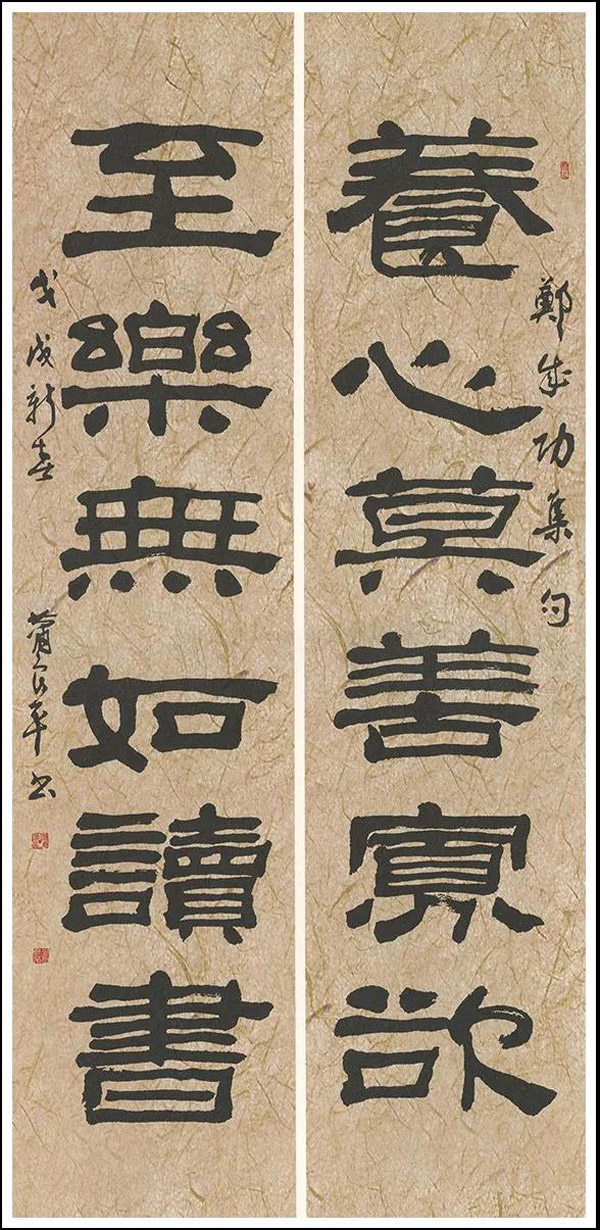 養心莫善寡欲
鄭成功集句
至樂無如讀書
戊戌新春
書